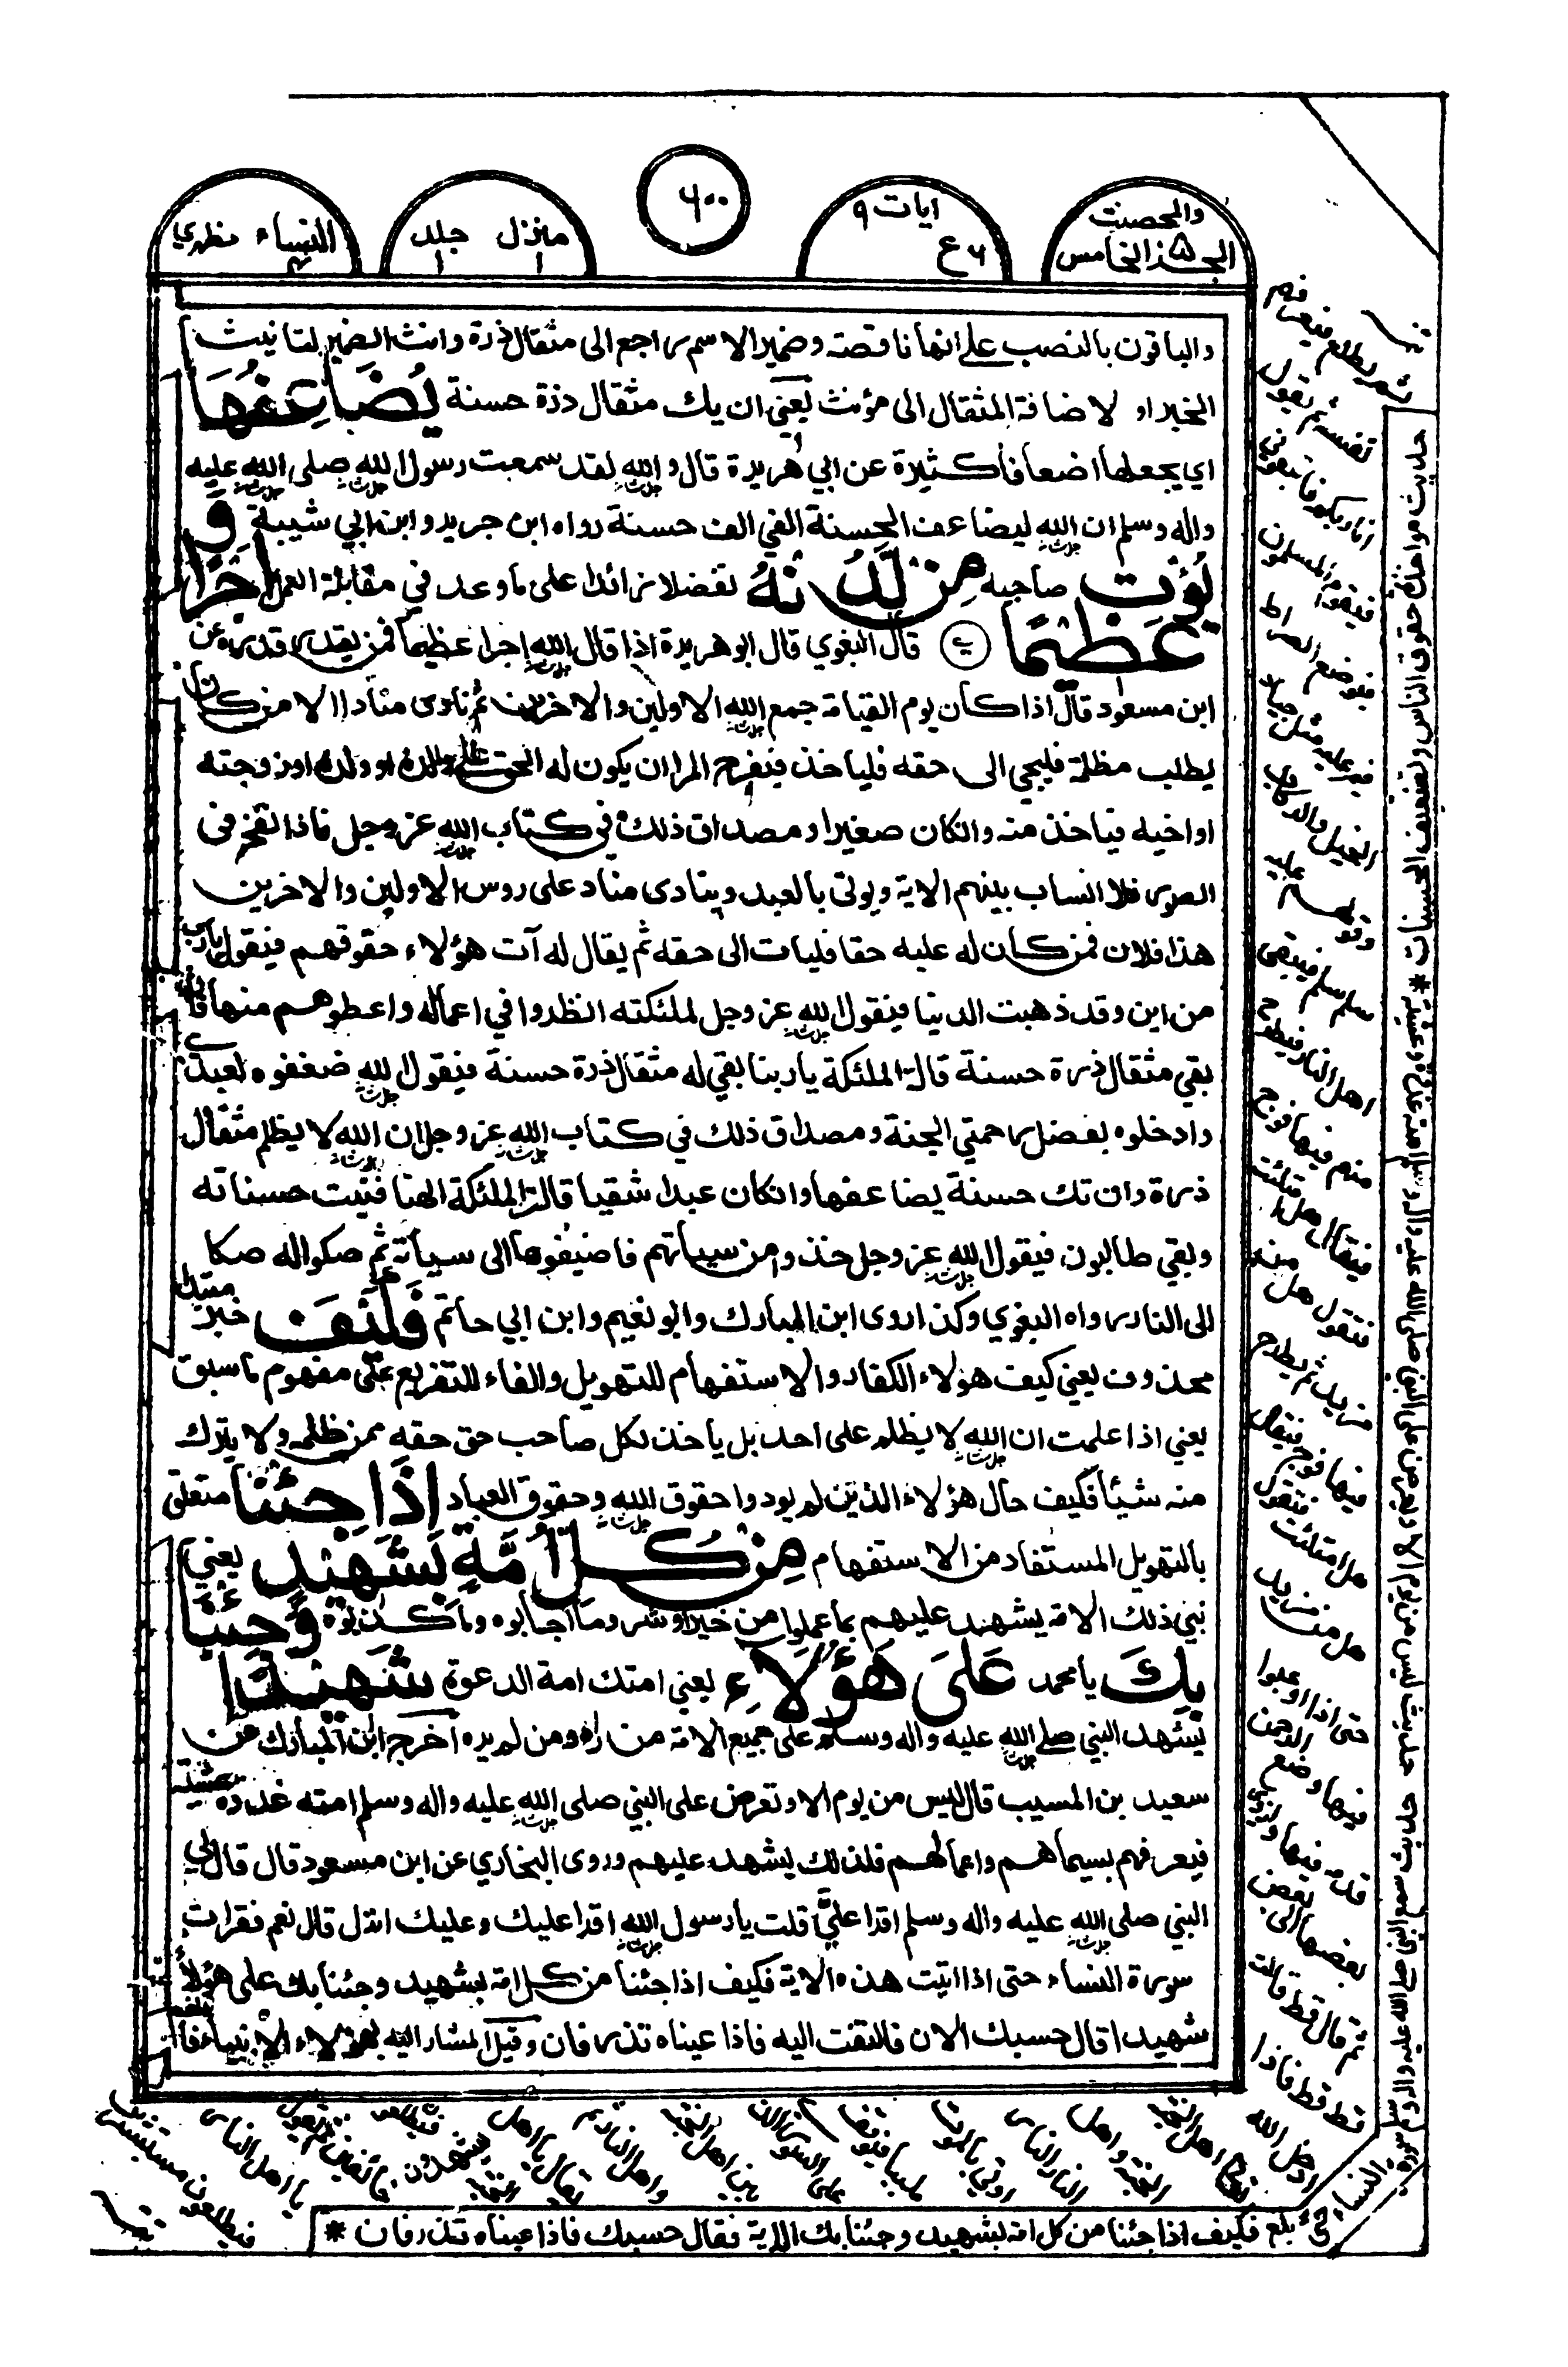 والمحصنت
الجزء الخامس ٥
ايات ٩
ع ٦
٦٠٠
منزل ١
جلد ١
النساء ٤ مظهري
والباقون بالنصب على انها ناقصة وضمير الاسم راجع الى مثقال ذرة وانث الضمير لتانيث
الخبر او لاضافة المثقال الى مؤنث يعني ان يك مثقال ذرة حسنة يُضَاعِفْهَا
اي يجعلها اضعافا كثيرة عن ابي هريرة قال والله لقد سمعت رسول الله صلى الله عليه
واله وسلم ان الله ليضاعف الحسنة الفي الف حسنة رواه ابن جرير وابن ابي شيبة وَ
يُؤْتِ صاحبه مِنْ لَّدُنْهُ تفضلا زائدا على ما وعد في مقابلة العمل اَجْرًا
عَظِيْمًا قال البغوي قال ابو هريرة اذا قال الله اجرا عظيما فمن يقدر قدره عن
ابن مسعود قال اذا كان يوم القيامة جمع الله الاولين والاخرين ثم نادى مناد الا من كان
يطلب مظلمة فليجي الى حقه فلياخذ فيفرح المرا ان يكون له الحق على والده او ولده او زوجته
او اخيه فياخذ منه وانكان صغيرا ومصداق ذلك في كتاب الله عز وجل فاذا نفخ في
الصور فلا انساب بينهم الاية ويوتى بالعبد وينادى مناد على روس الاولين والاخرين
هذا فلان فمن كان له عليه حقا فليات الى حقه ثم يقال له آت هؤلاء حقوقهم فيقول يارب
من اين وقد ذهبت الدنيا فيقول الله عز وجل لملئكته انظروا في اعماله واعطوهم منها فان
بقي مثقال ذرة حسنة قالت الملئكة ياربنا بقي له مثقال ذرة حسنة فيقول الله ضعفوه لعبدي
وادخلوه بفضل رحمتي الجنة ومصداق ذلك في كتاب الله عز وجل ان الله لا يظلم مثقال
ذرة وان تك حسنة يضاعفها وانكان عبدا شقيا قالت الملئكة الهنا فنيت حسناته
وبقي طالبون فيقول الله عز وجل خذوا من سياتهم فاضيفوها الى سياته ثم صكوا له صكا
الى النار رواه البغوي وكذا روى ابن المبارك وابو نعيم وابن ابي حاتم فَكَيْفَ خبر مبتدا
محذوف يعني كيف هؤلاء الكفار والاستفهام للتهويل والفاء للتفريع على مفهوم ما سبق
يعني اذا علمت ان الله لا يظلم على احد بل ياخذ لكل صاحب حق حقه ممن ظلمه ولا يترك
منه شيئا فكيف حال هؤلاء الذين لم يودوا حقوق الله وحقوق العباد اِذَا جِئْنَا متعلق
بالتهويل المستفاد من الاستفهام مِنْ كُلِّ اُمَّةٍ بِشَهِيْدٍ يعني
نبي ذلك الامة يشهد عليهم بما عملوا من خير او شر وما اجابوه وما كذبوه وَّجِئْنَا
بِكَ يا محمد عَلٰى هٰٓؤُلَاءِ يعني امتك امة الدعوة شَهِيْدًا
يشهد النبي صلى الله عليه واله وسلم على جميع الامة من راه ومن لم يره اخرج ابن المبارك عن
سعيد بن المسيب قال ليس من يوم الا وتعرض على النبي صلى الله عليه واله وسلم امته غدوة وعشية
فيعرفهم بسيماهم واعمالهم فلذلك يشهد عليهم وروى البخاري عن ابن مسعود قال قال لي
النبي صلى الله عليه واله وسلم اقرا عليّ قلت يا رسول الله اقرا عليك وعليك انزل قال نعم فقرات
سورة النساء حتى اذا اتيت هذه الاية فكيف اذا جئنا من كل امة بشهيد وجئنا بك على هؤلاء
شهيدا قال حسبك الان فالتفت اليه فاذا عيناه تذرفان وقيل المشار اليه بهؤلاء الانبياء
حديث مواخذة حقوق الناس وتضعيف الحسنات *
حديث ليس من يوم الا وتعرض على النبي صلى الله عليه واله وسلم امته غدوة وعشية *
حديث سمع النبي صلى الله عليه واله وسلم سورة النساء حتى
بلغ فكيف اذا جئنا من كل امة بشهيد وجئنا بك الاية فقال حسبك فاذا عيناه تذرفان *
ثم يطلع فيعرفهم
نفسه ثم يقول
انا ربكم فاتبعوني
فيقوم المسلمون
فيوضع الصراط
فيمر عليه مثل جياد
الخيل والركاب
وقولهم عليه
سلم سلم فيبقى
اهل النار فيطرح
منهم فيها فوج
فيقال هل امتلئت
فتقول هل من
مزيد ثم يطرح
فيها فوج فيقال
هل امتلئت فتقول
هل من مزيد
حتى اذا اوعبوا
فيها وضع الرحمن
قدمه فيها وازوى
بعضها الى بعض
ثم قال قط قالت
قط قط فاذا
ادخل الله